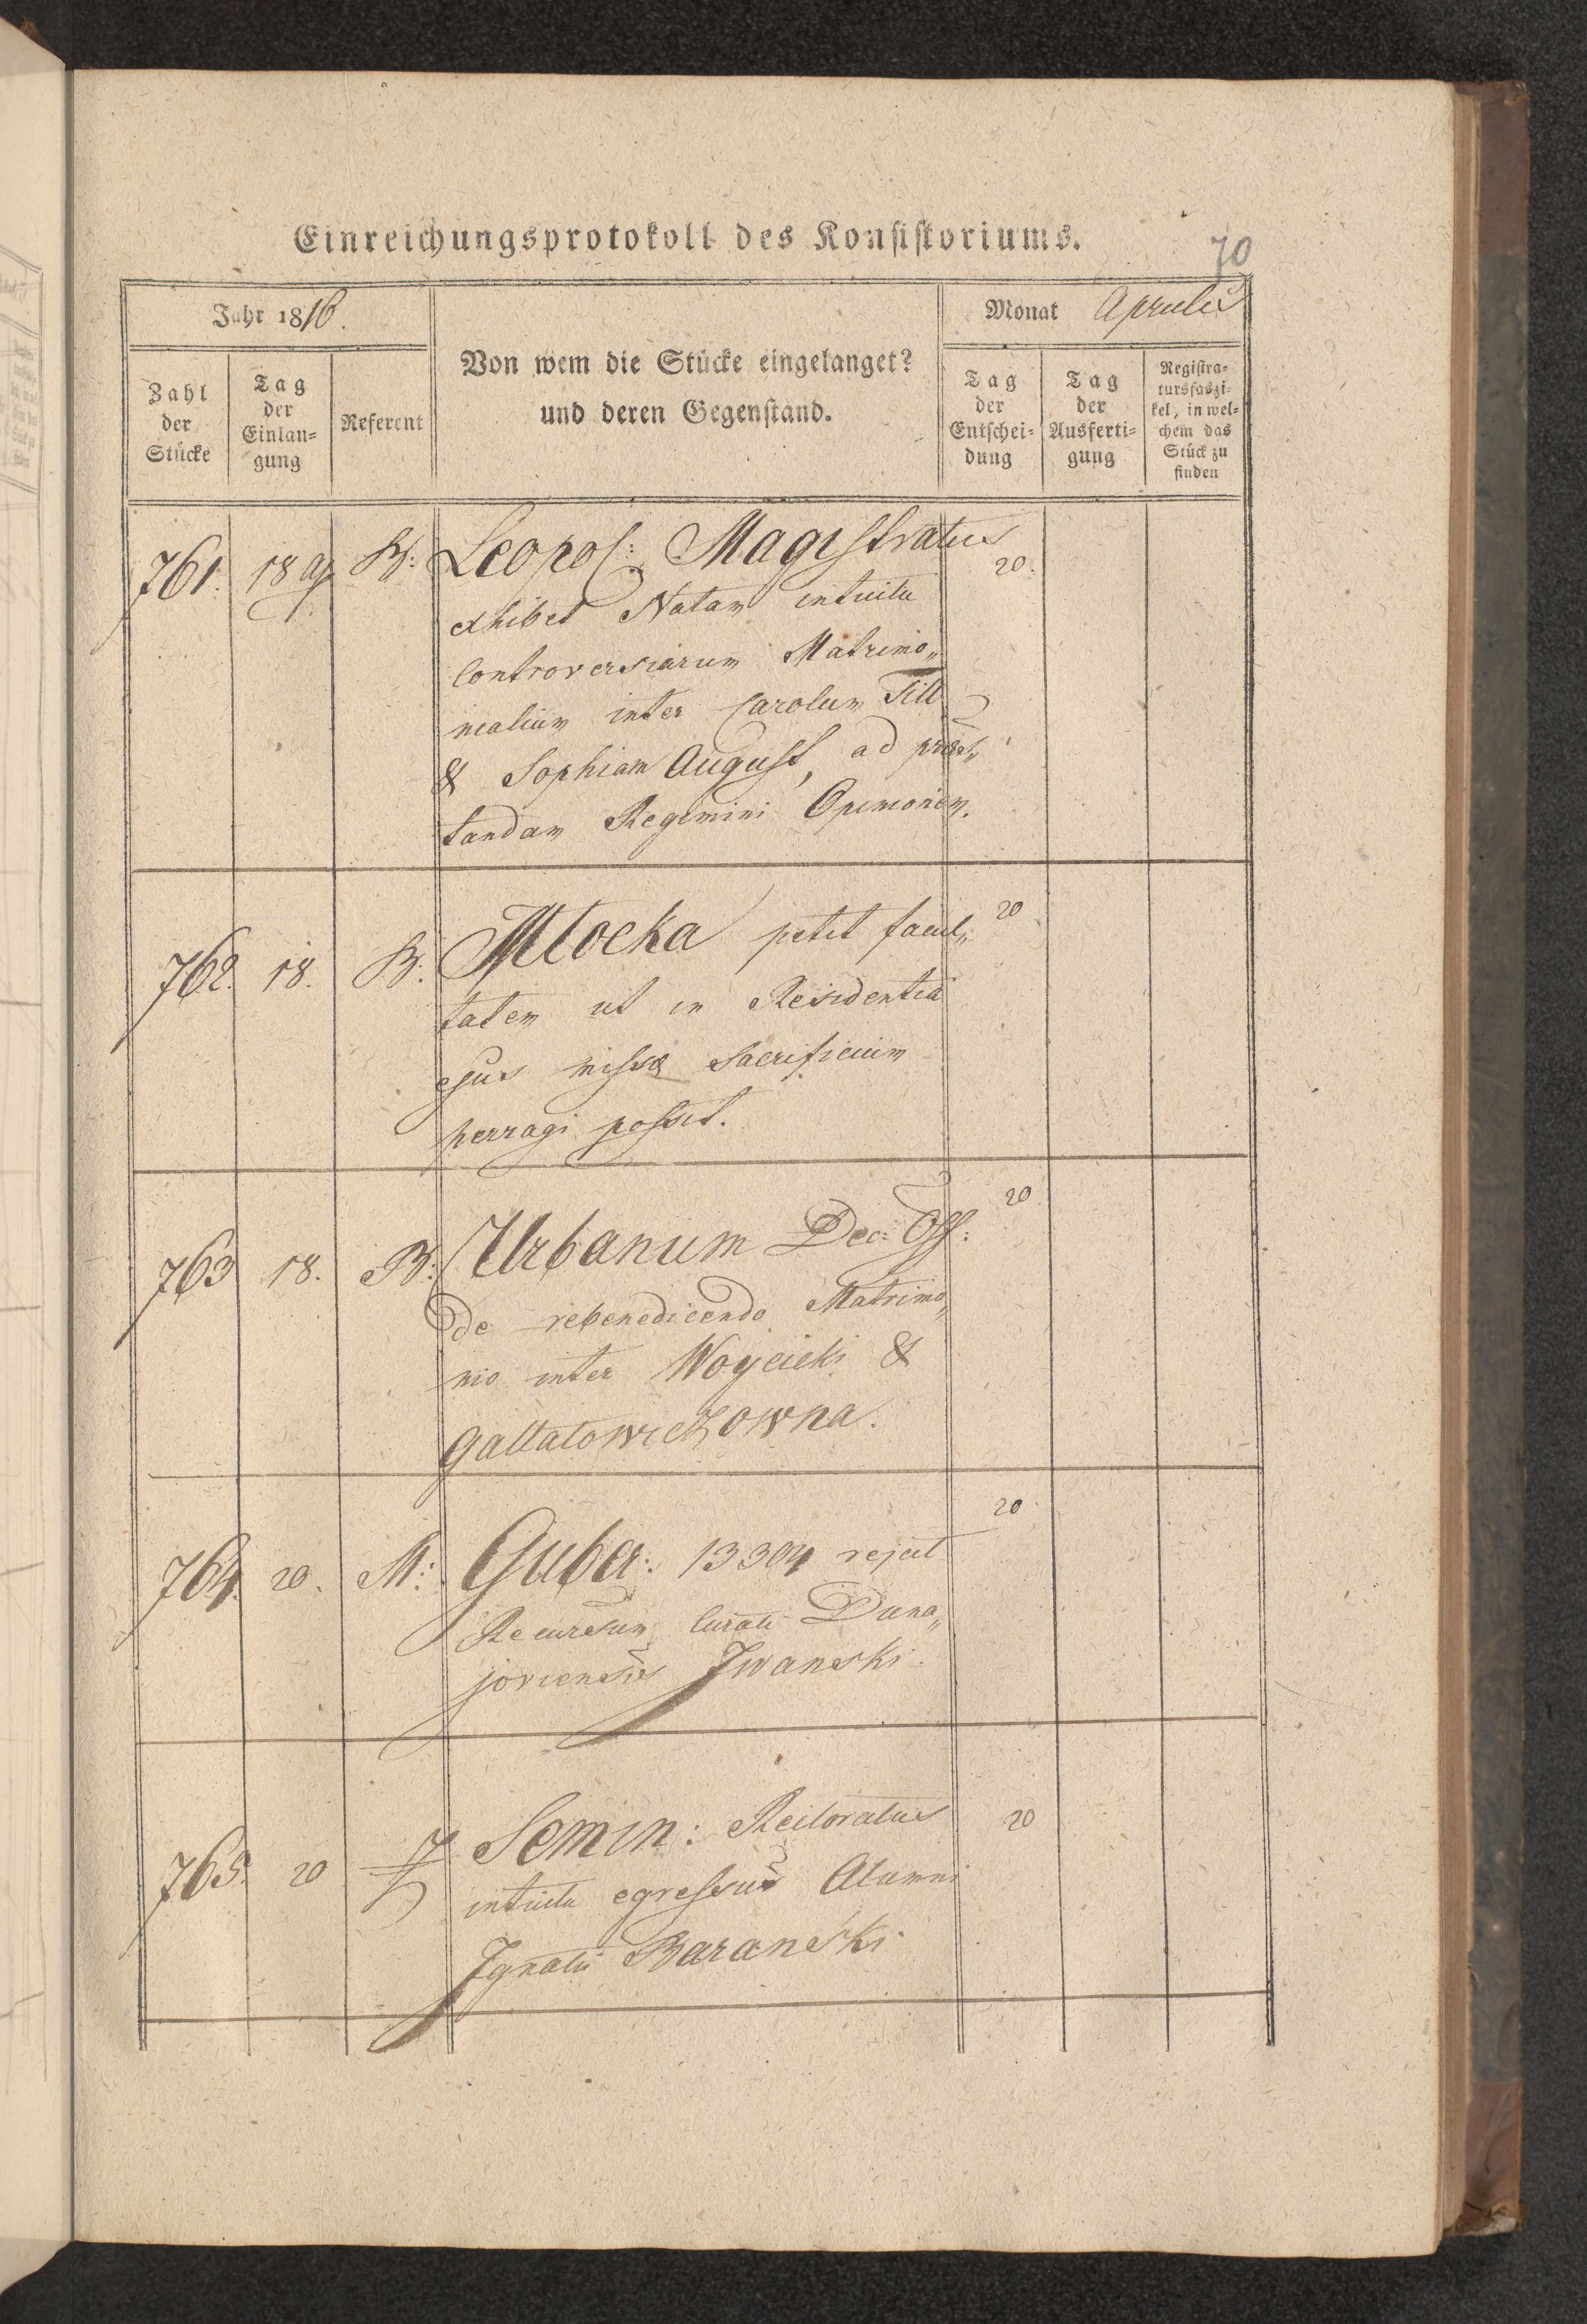 Einreichungsprotokoll des Konsistoriums.
70
Jahr 1816.
Monat Aprilis
Zahl der Stücke
Tag der Einlan=gung
Referent
Von wem die Stücke eingelanget?
und deren Gegenstand.
Tag der Entschei=dung
Tag der Ausferti=gung
Registra=tursfaszi=kel, in wel=chem das Stück zu finden
761. 18 B: Leopol: Magistratus 20.
exhibet Notam intuitu
Controversiarum Matrimo„
nialium inter Carolum Till
& Sophiam August, ad præs„
tandam Regimini Opinionem.
762. 18. B: Młocka petit facul„ 20
tatem ut in Residentia
ejus missæ Sacrificium
perragi possit.
763 18. B: Urbanum Dec: Off: 20
de rebenedicendo Matrimo„
nio inter Woycicki &
Gallatowiczowna.
764. 20. M: Guber: 13304 rejicit 20
Recursum Curati Duna„
joviensis Iwanski.
765. 20 Semin: Rectoratus 20
intuitu egressus Alumni
Ignatii Baranski